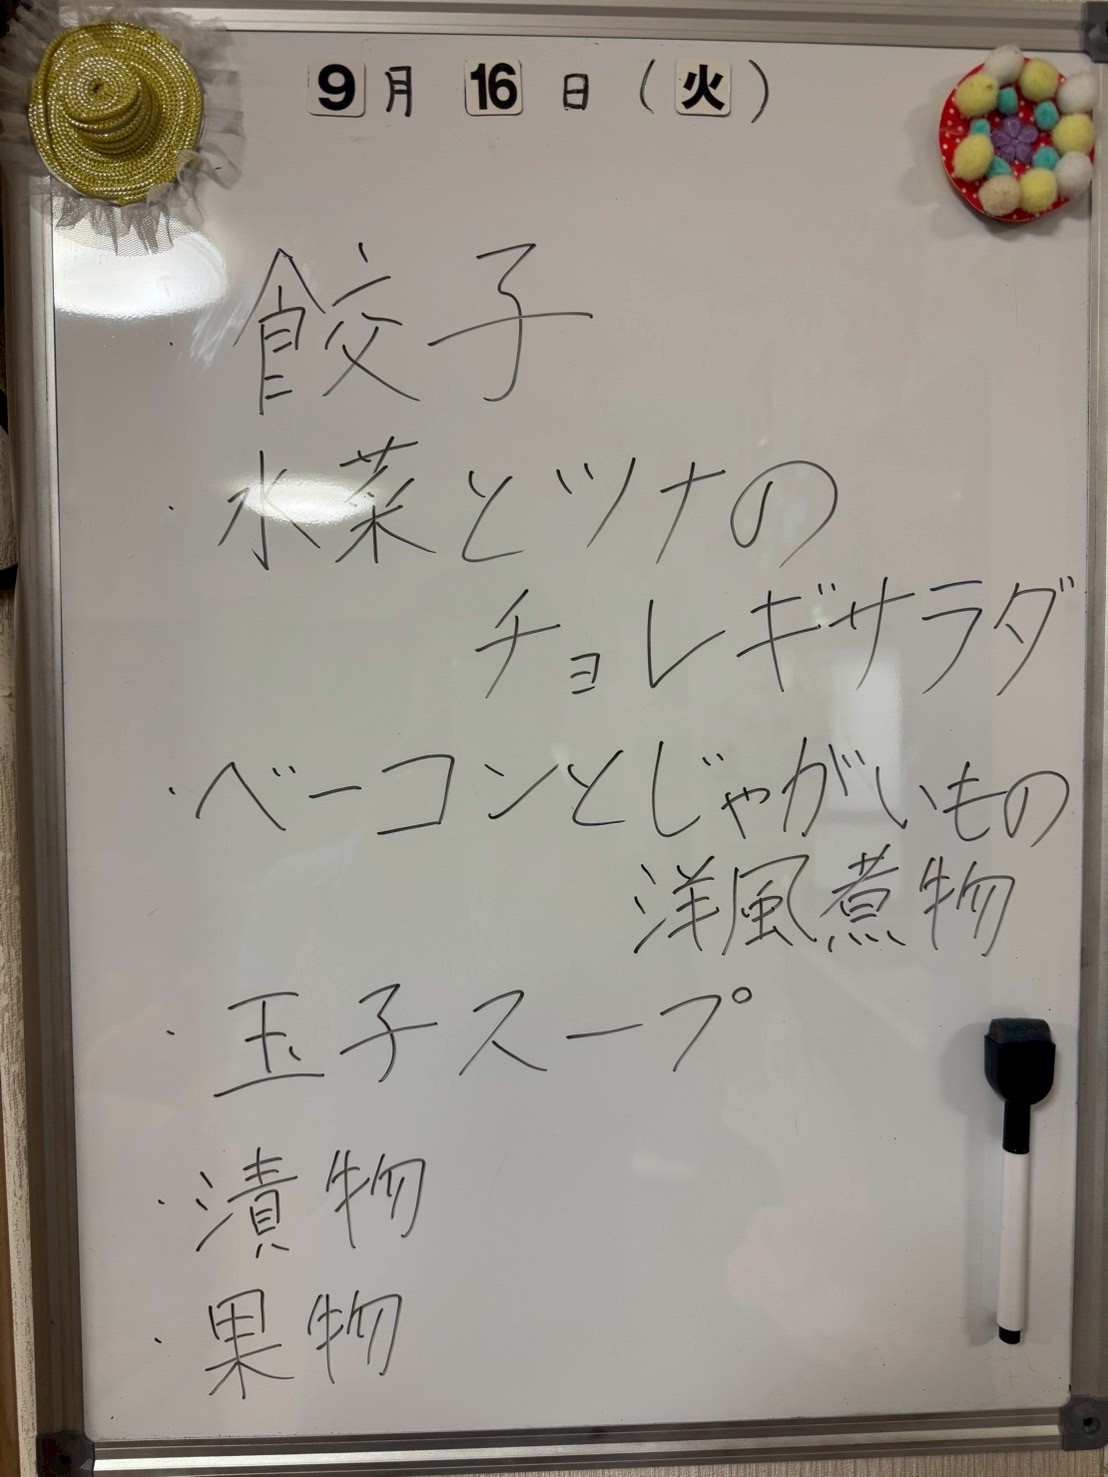 9月 16日(火)
餃子
・水菜とツナの
チョレギサラダ
・ベーコンとじゃがいもの
洋風煮物
・玉子スープ
・漬物
・果物